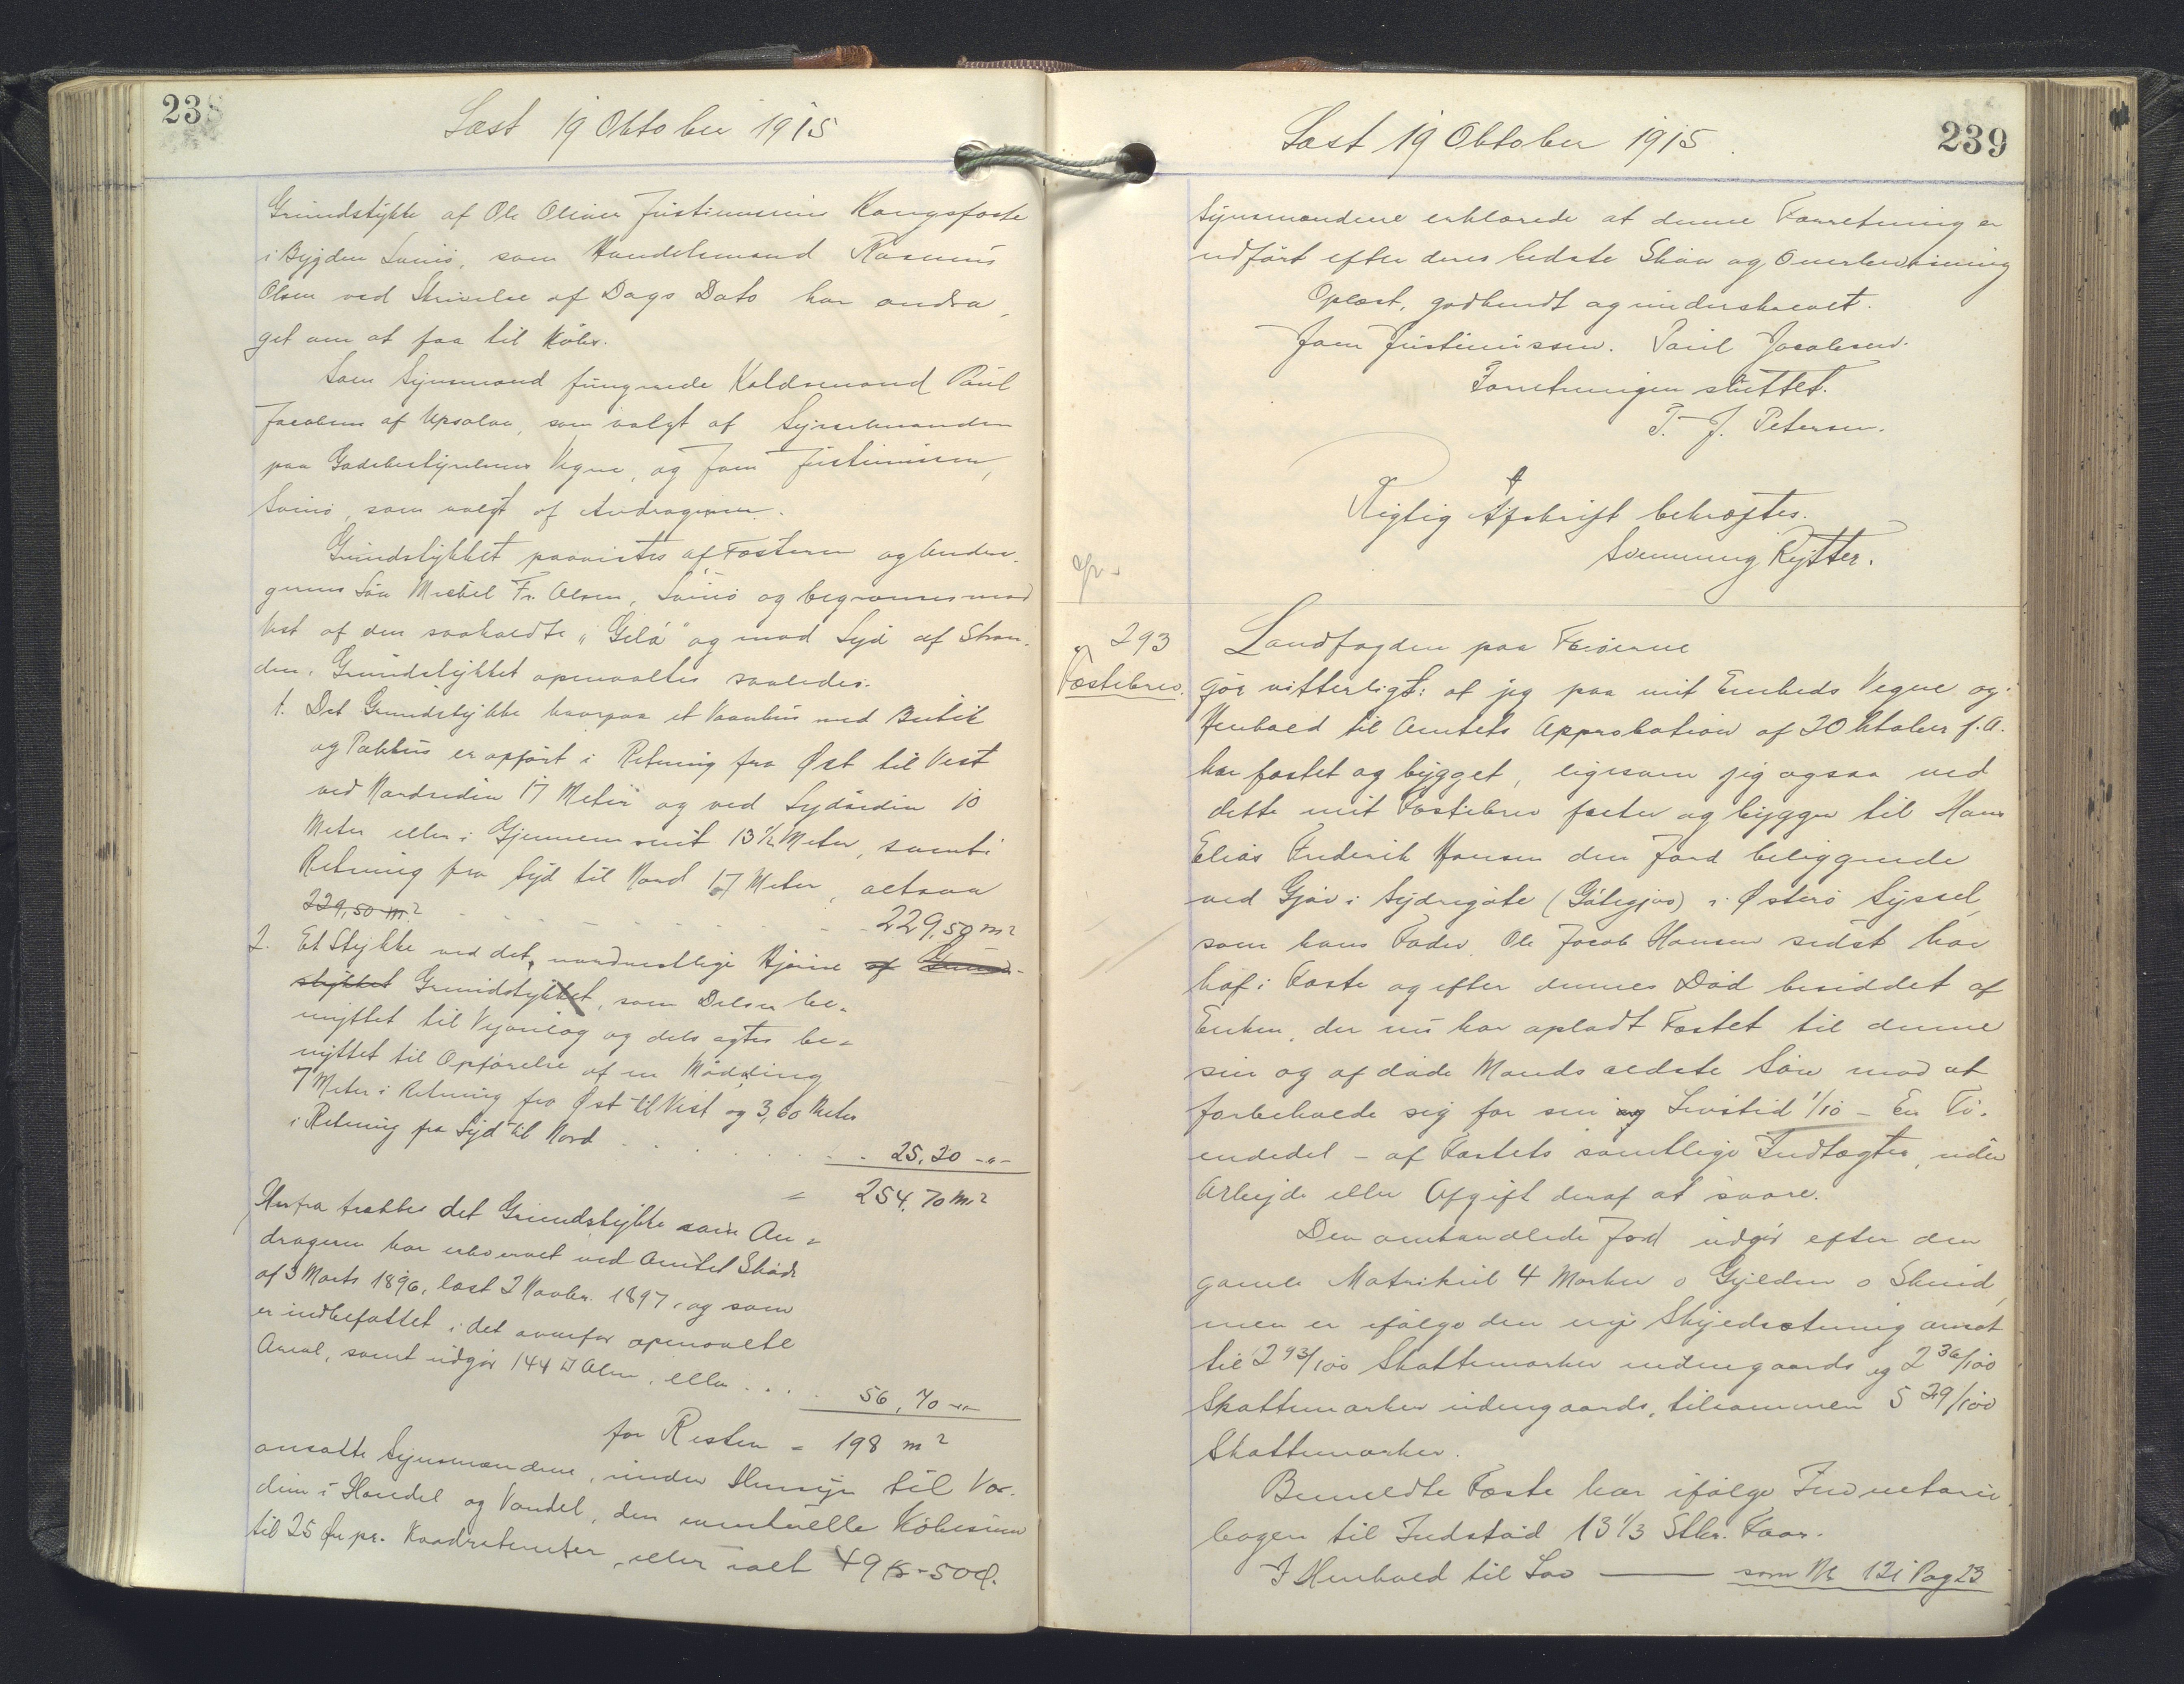 238
Læst 19 Oktober 1915
Grundstykke af Ole Oliver Justinussens Kongsfæste
i Bygden Svinø, som Handelsmand Rasmus
Olsen ved Skrivelse af Dags Dato har andra-
get om at faa til Købs.
Som Synsmand fungerede Kaldsmand Paul
Jacobsen af Upsalaa, som valgt af Sysselmanden
paa Godsbestyrelsens Vegne, og Joen Justinussen,
Svinø, som valgt af Andrageren.
Grundstykket paavistes af Fæsteren og Andra-
gerens Søn Mickel Fr. Olsen, Svinø og begrænses mod
Vest af den saakaldte "Gilá" og mod Syd af Stran-
den. Grundstykket opmaaltes saaledes.
1. Det Grundstykke hvorpaa et Vaanhus med Butik
og Pakhus er opført i Retning fra Øst til Vest
ved Nordsiden 17 Meter og ved Sydsiden 10
Meter eller i Gjennemsnit 13½ Meter, samt i
Retning fra Syd til Nord 17 Meter, altsaa
229,50 m² 229,50 m²
2. Et Stykke ved det nordvestlige Hjørne af Grund-
stykket Grundstykket, som Delsen be-
nyttet til Vejanlæg og dels agtes be-
nyttet til Opførelse af en Mødding
7 Meter i Retning fra Øst til Vest og 3,60 Meter
i Retning fra Syd til Nord 25.20 -"-
= 254,70 m²
Herfra trækkes det Grundstykke som An-
drageren har erhvervet ved Amtets Skøde
af 3 Marts 1896, læst 2 Novbr. 1897, og som
er indbefattet i det ovenfor opmaalte
Areal, samt udgør 144 □ Alen, eller .... 56,70 -"-
for Resten = 198 m²
ansatte Synsmændene, under Hensyn til Vær-
dien i Handel og Vandel, den eventuelle Købesum
til 25 Øre pr. Kvadratmeter, eller ialt 49 Kr - 50 Ø.
Læst 19 Oktober 1915
239
Synsmændene erklærede at denne Forretning er
udført efter deres bedste Skøn og Overbevisning
Oplæst, godkendt og underskrevet.
Joen Justinussen. Paul Jacobsen.
Forretningen sluttet.
P. J. Petersen.
Rigtig Afskrift bekræftes.
Svenning Rytter.
293
Fæstebrev.
Landfogden paa Færøerne
gør vitterligt: at jeg paa mit Embeds Vegne og i
Henhold til Amtets Approbation af 2 Oktober f. A.
har fæstet og bygget, ligesom jeg ogsaa ved
dette mit Fæstebrev fæster og bygger til Hans
Elias Frederik Hansen den Jord beliggende
ved Gjov i Sydregøte (Gøtegjov) i Østerø Syssel,
som hans Fader Ole Jacob Hansen sidst har
haft i Fæste og efter dennes Død besiddet af
Enken, der nu har opladt Fæstet til denne
sin og afdøde Mands ældste Søn mod at
forbeholde sig for sin og Livstid 1/10 - En Ti-
endedel - af Fæstets samtlige Indtægter, uden
Arbejde eller Afgift deraf at svare.
Den omhandlede Jord udgør efter den
gamle Matrikul 4 Marker 0 Gylden 0 Skind,
men er ifølge den nye Skyldsætning ansat
til 2 93/100 Skattemarker indengaards og 2 36/100
Skattemarker udengaards, tilsammen 5 29/100
Skattemarker.
Bemeldte Fæste har ifølge Inventarie
bogen til Indstød 13 1/3 Stkr. Faar.
I Henhold til Lov —— som Nr 121 Pag 23